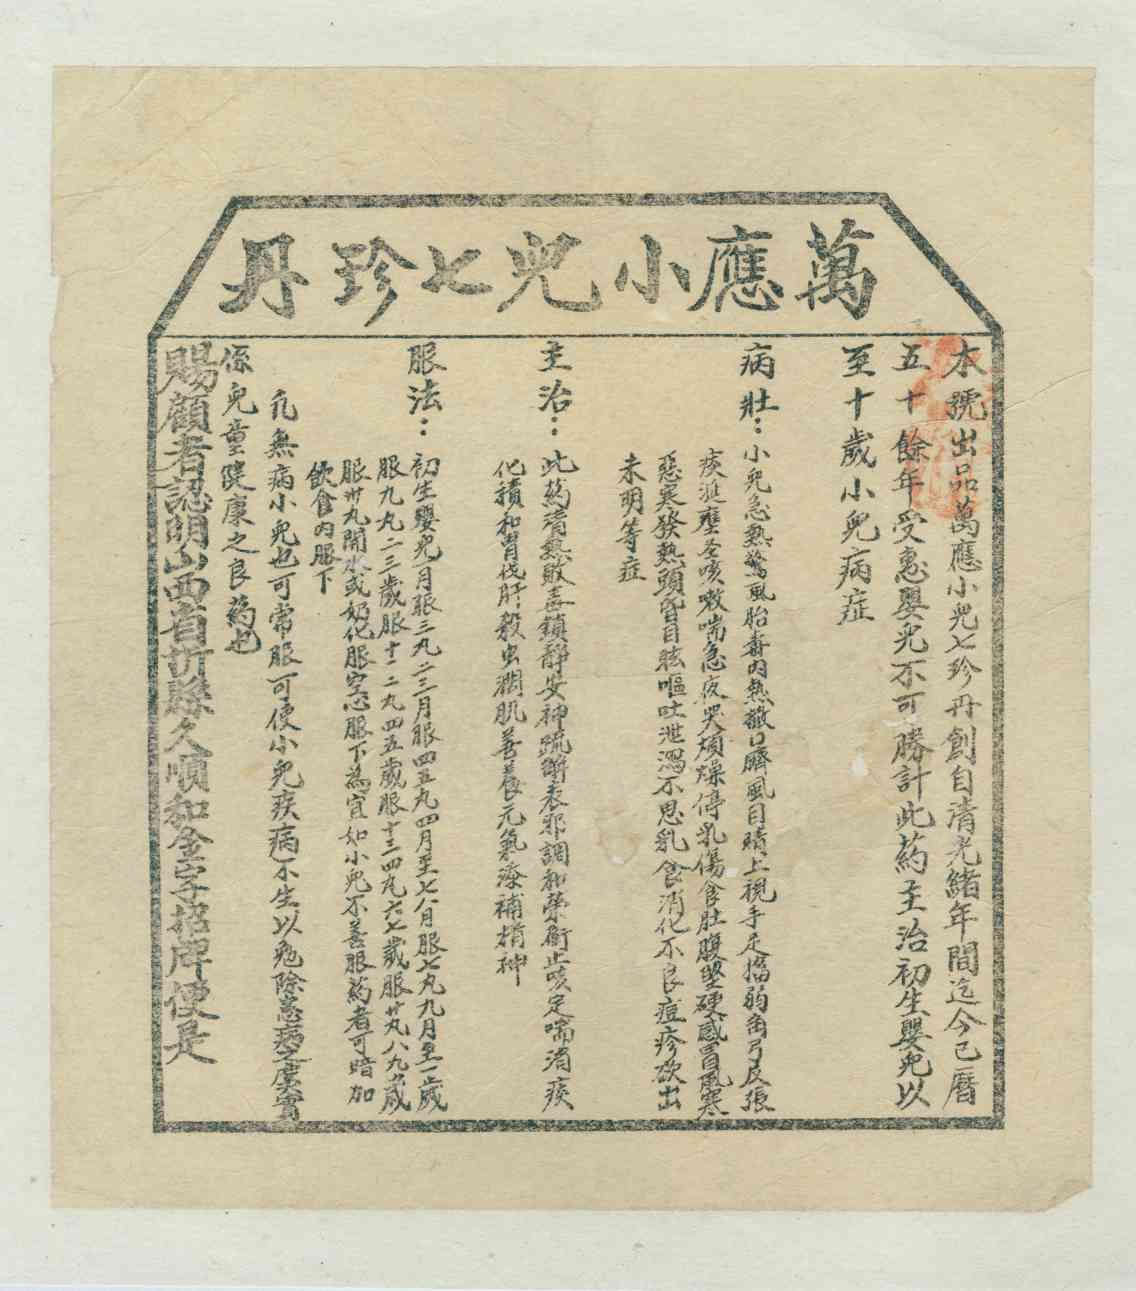 萬應小兒七珍丹
本號出品萬應小兒七珍丹創自清光緒年間迄今已曆
五十餘年受惠嬰兒不可勝計此葯主治初生嬰兒以
至十歲小兒病症
病壯：小兒急熱驚風胎毒內熱撮口臍風目睛上視手足搐弱角弓反張
痰涎壅全咳嗽喘急夜哭煩燥停乳傷食肚腹堅硬感冒風寒
惡寒發熱頭昏目眩嘔吐泄瀉不思乳食消化不良痘疹欲出
未明等症
主治：此葯清熱敗毒鎮靜安神疏謝表邪調和榮衛止咳定喘消痰
化積和胃伐肝殺虫潤肌善養元氣滋補精神
服法：初生嬰兒一月服三丸二三月服四五丸四月至七八月服七丸九月至一歲
服九丸二三歲服十一二丸四五歲服十三四丸六七歲服廿丸八九歲
服卅丸開水或奶化服空心服下為宜如小兒不善服葯者可暗加
飲食內服下
凢無病小兒也可常服可使小兒疾病不生以免除患病之慮實
係兒童健康之良葯也
賜顧者認明山西省忻縣久順和金字招牌便是